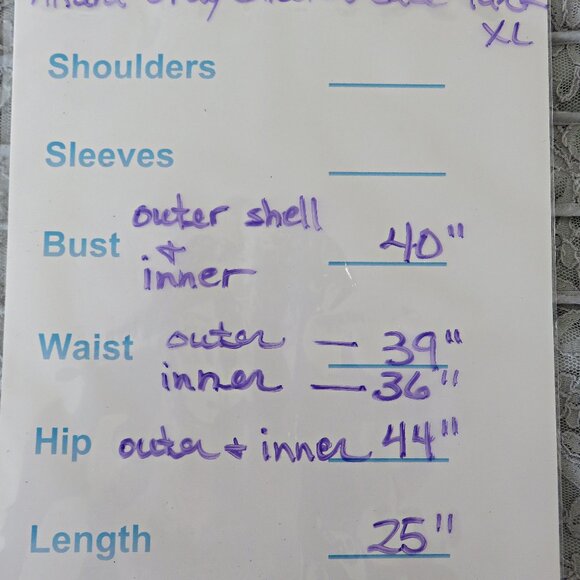 XL
Shoulders
Sleeves
outer shell
Bust + 40"
inner
Waist outer — 39"
inner — 36"
Hip outer + inner 44"
Length 25"